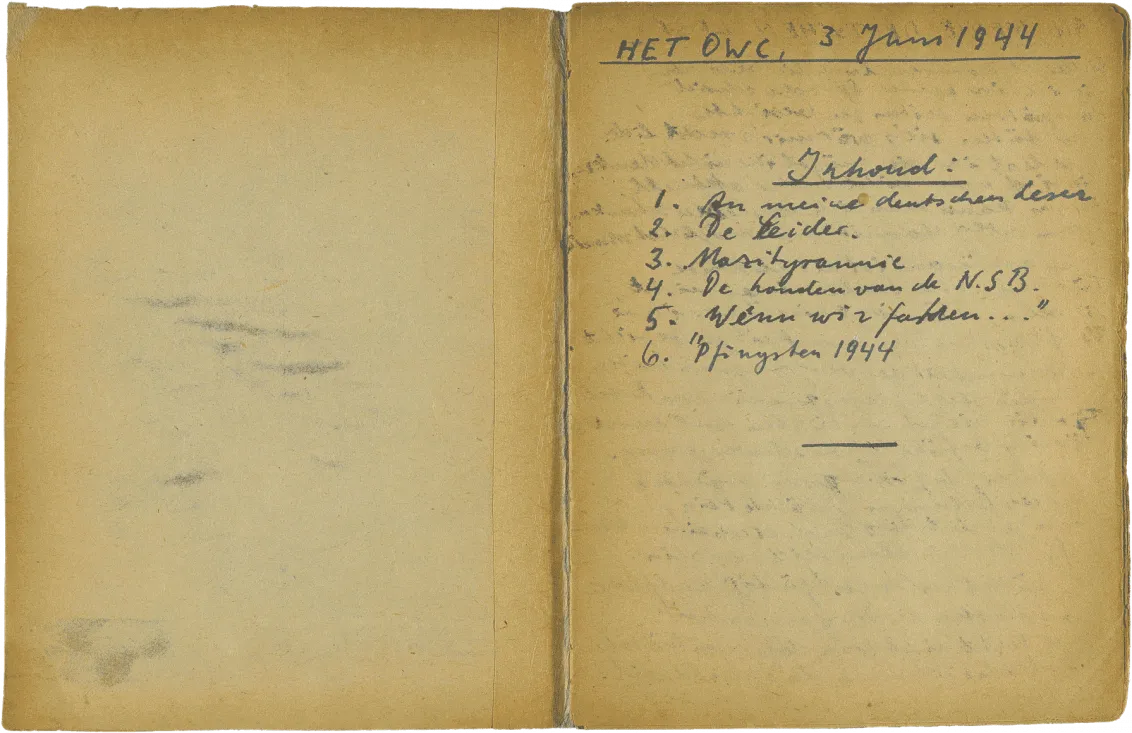 HET OWC, 3 Juni 1944
Inhoud:
1. An meine deutschen Leser
2. De Leider.
3. Nazityrannie
4. De honden van de N.S.B.
5. "Wenn wir fahren..."
6. "Pfingsten 1944